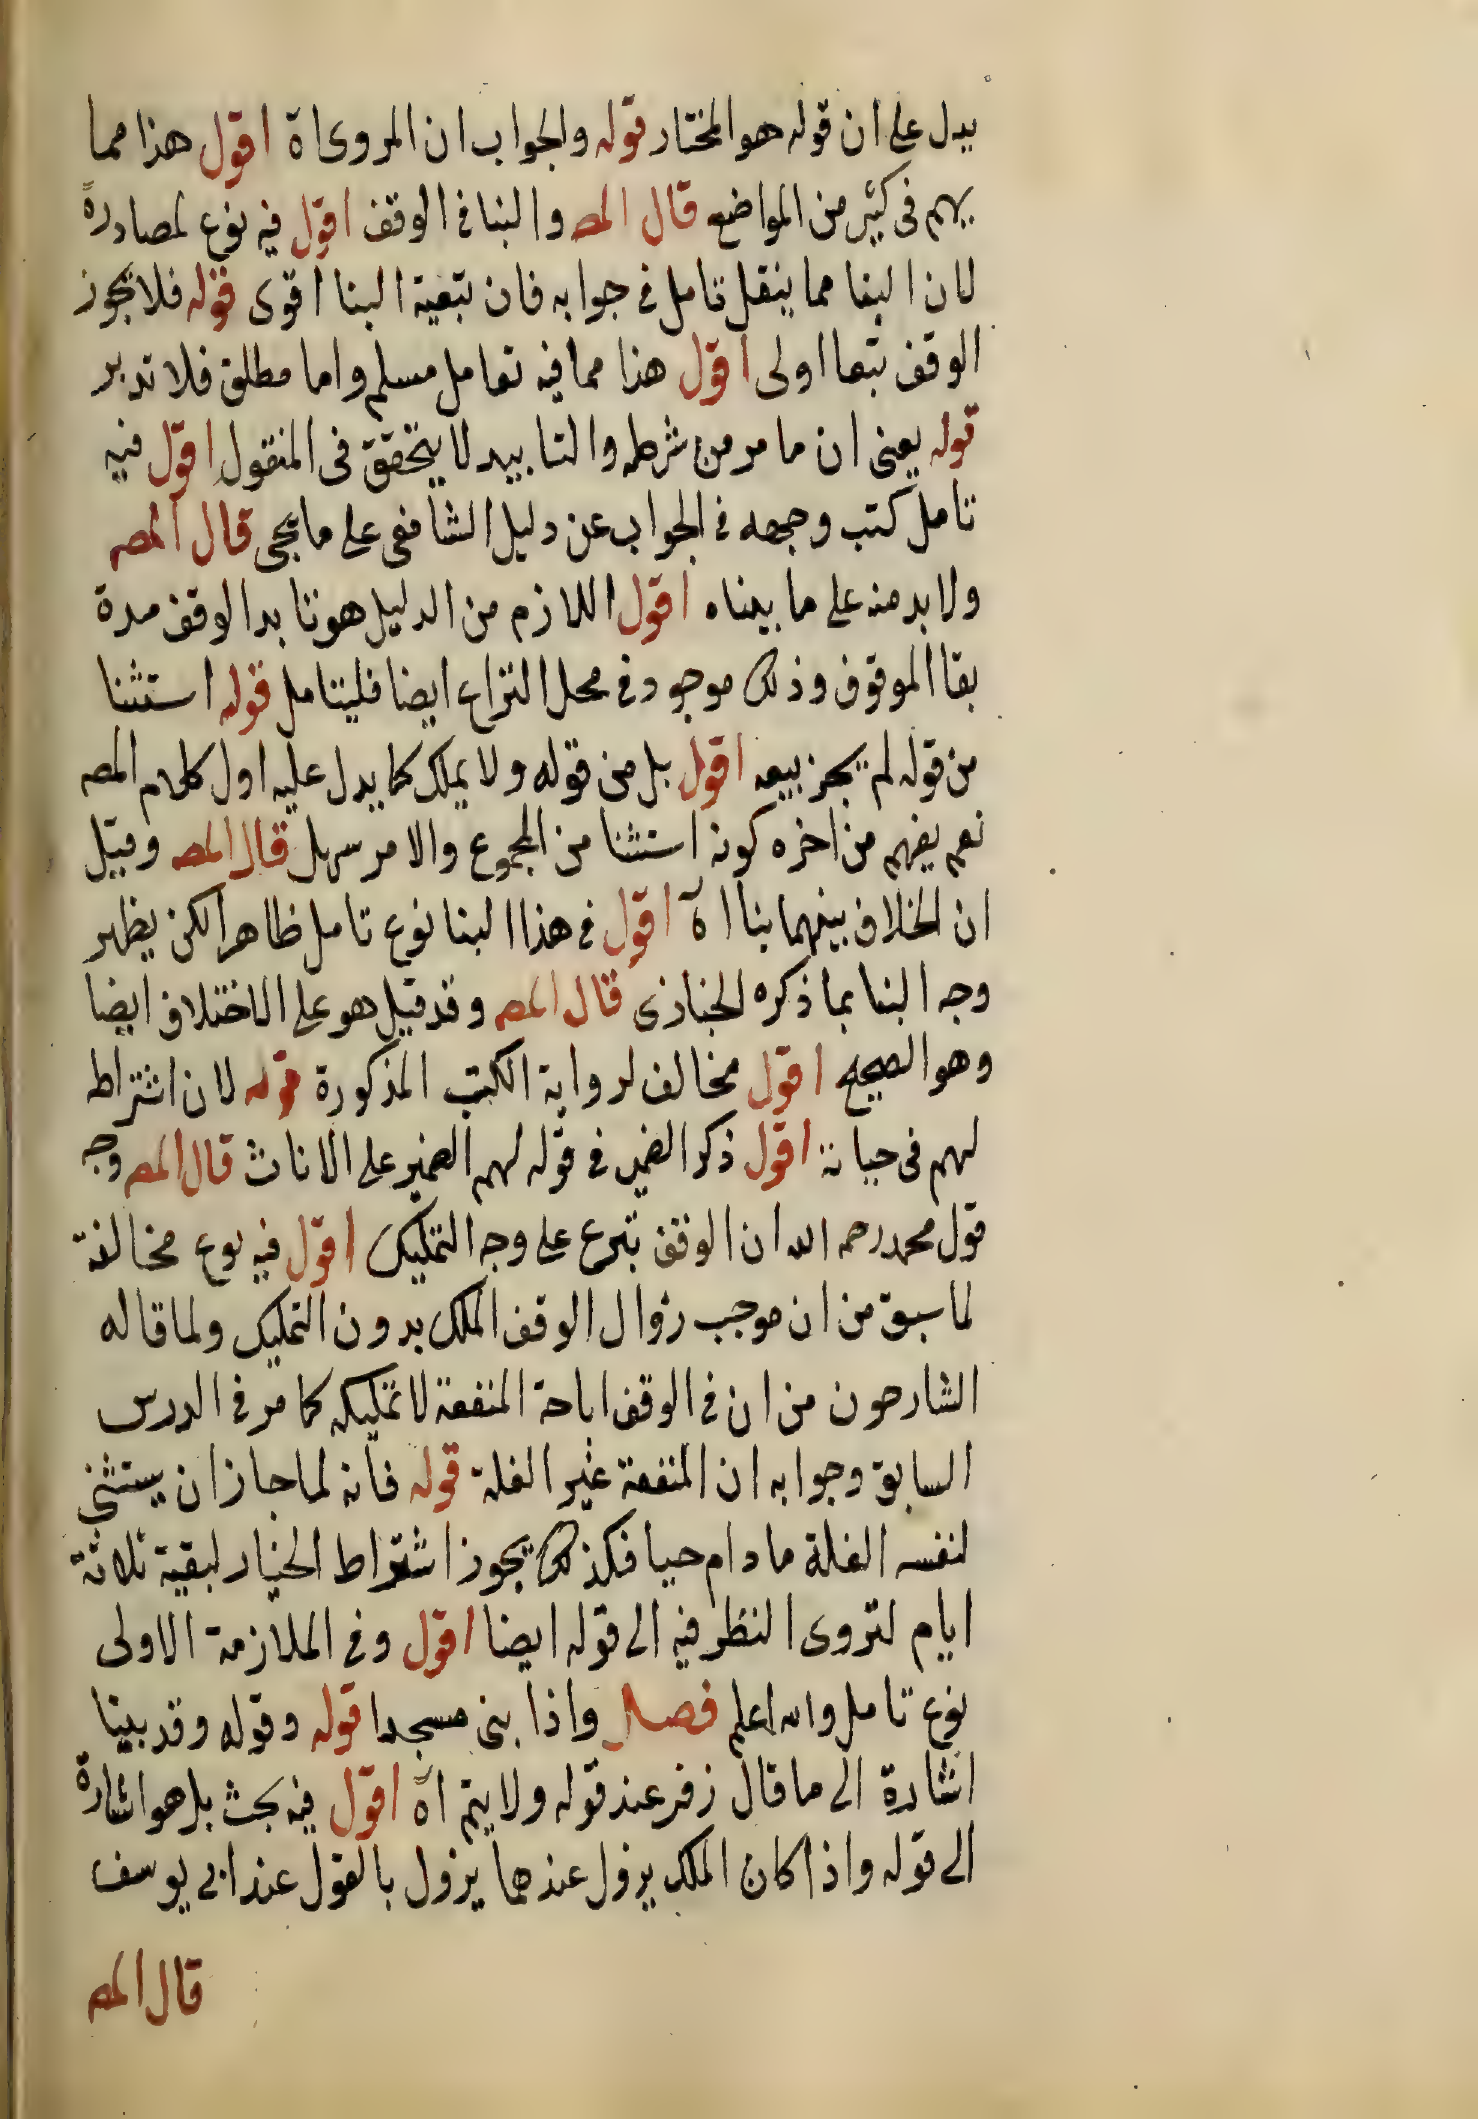 يدل على ان قوله هو المختار قوله والجواب ان المروى اه اقول هذا مما
يهم فى كثير من المواضع قال المص والبنا فى الوقف اقول فيه نوع لمصادرة
لان البنا مما ينقل تامل فى جوابه فان تبعية البنا اقوى قوله فلا تجوز
الوقف تبعا اولى اقول هذا مما فيه تعامل مسلم واما مطلق فلا تدبر
قوله يعنى ان ما مر من شرطه والتابيد لا يتحقق فى المنقول اقول فيه
تامل كتب وجهه فى الجواب عن دليل الشافعى على ما يجى قال المص
ولا بد منه على ما بيناه اقول اللازم من الدليل هو تابد الوقف مدة
بقا الموقوف وذلك موجود فى محل النزاع ايضا فليتامل قوله استثنا
من قوله لم يجز بيعه اقول بل من قوله ولا يملك كما يدل عليه اول كلام المص
نعم يفهم من اخره كونه استثنا من المجموع والامر سهل قال المص وقيل
ان الخلاف بينهما بنا اه اقول فى هذا البنا نوع تامل ظاهرا لكن يظهر
وجه البنا بما ذكره الخبازى قال المص وقد قيل هو على الاختلاف ايضا
وهو الصحيح اقول مخالف لرواية الكتب المذكورة قوله لان اشتراط
لهم فى حياته اقول ذكر الضمير فى قوله لهم الضمير على الاناث قال المص وجه
قول محمد رحمه الله ان الوقف تبرع على وجه التمليك اقول فيه نوع مخالفة
لما سبق من ان موجب زوال الوقف الملك بدون التمليك ولما قاله
الشارحون من ان فى الوقف اباحة المنفعة لا تمليكه كما مر فى الدرس
السابق وجوابه ان المنفعة غير الغلة قوله فانه لما جاز ان يستثنى
لنفسه الغلة ما دام حيا فكذلك يجوز اشتراط الخيار لبقية ثلاثة
ايام لتروى النظر فيه الى قوله ايضا اقول وفى الملازمة الاولى
نوع تامل والله اعلم فصل واذا بنى مسجدا قوله وقوله وقد بينا
اشارة الى ما قال زفر عند قوله ولا يتم اه اقول فيه بحث بل هو اشارة
الى قوله واذا كان الملك يزول عندهما يزول بالقول عند ابى يوسف
قال المص